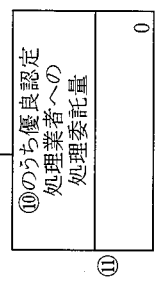 ⑩のうち優良認定
処理業者への
処理委託量
⑪
0